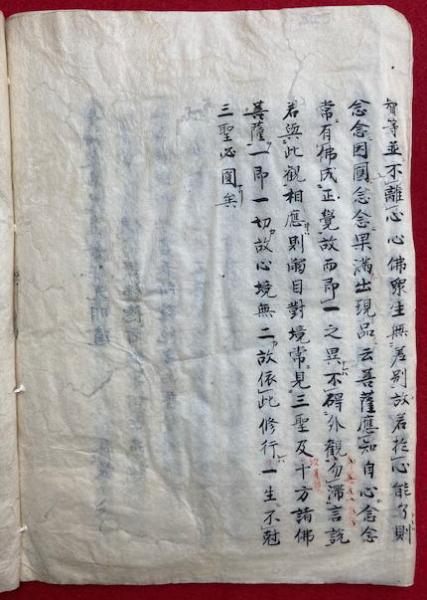 智等並不離心心佛眾生無差別故若於心能了則
念念因圓念念果滿出現品云菩薩應知自心念念
常有佛成正覺故而即一之異不礙外觀勿滯言說
若與此觀相應則觸目對境常見三聖及十方諸佛
菩薩一即一切故心境無二故依此修行一生不尅
三聖必圓矣